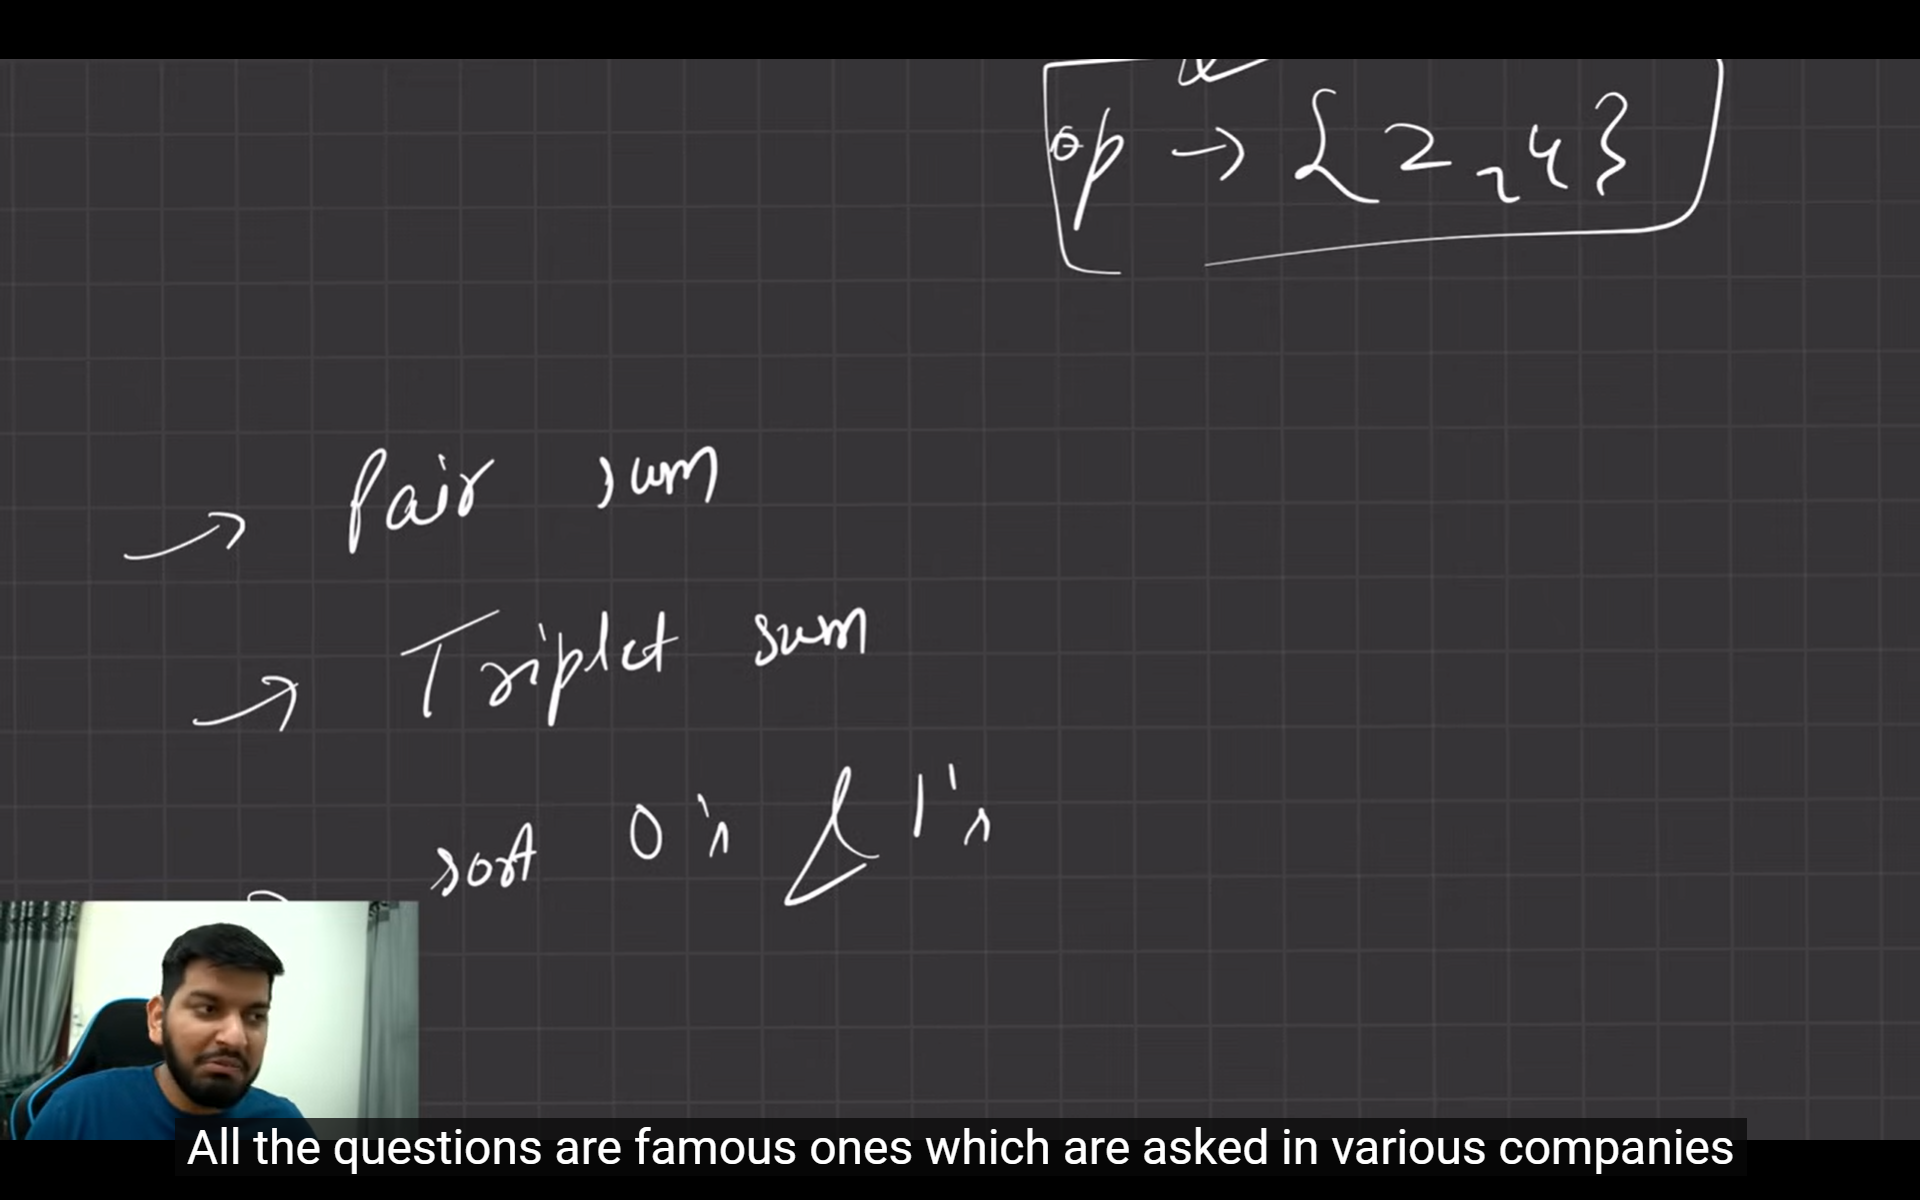 op → {2, 4}
→ Pair sum
→ Triplet sum
sort 0's & 1's
All the questions are famous ones which are asked in various companies